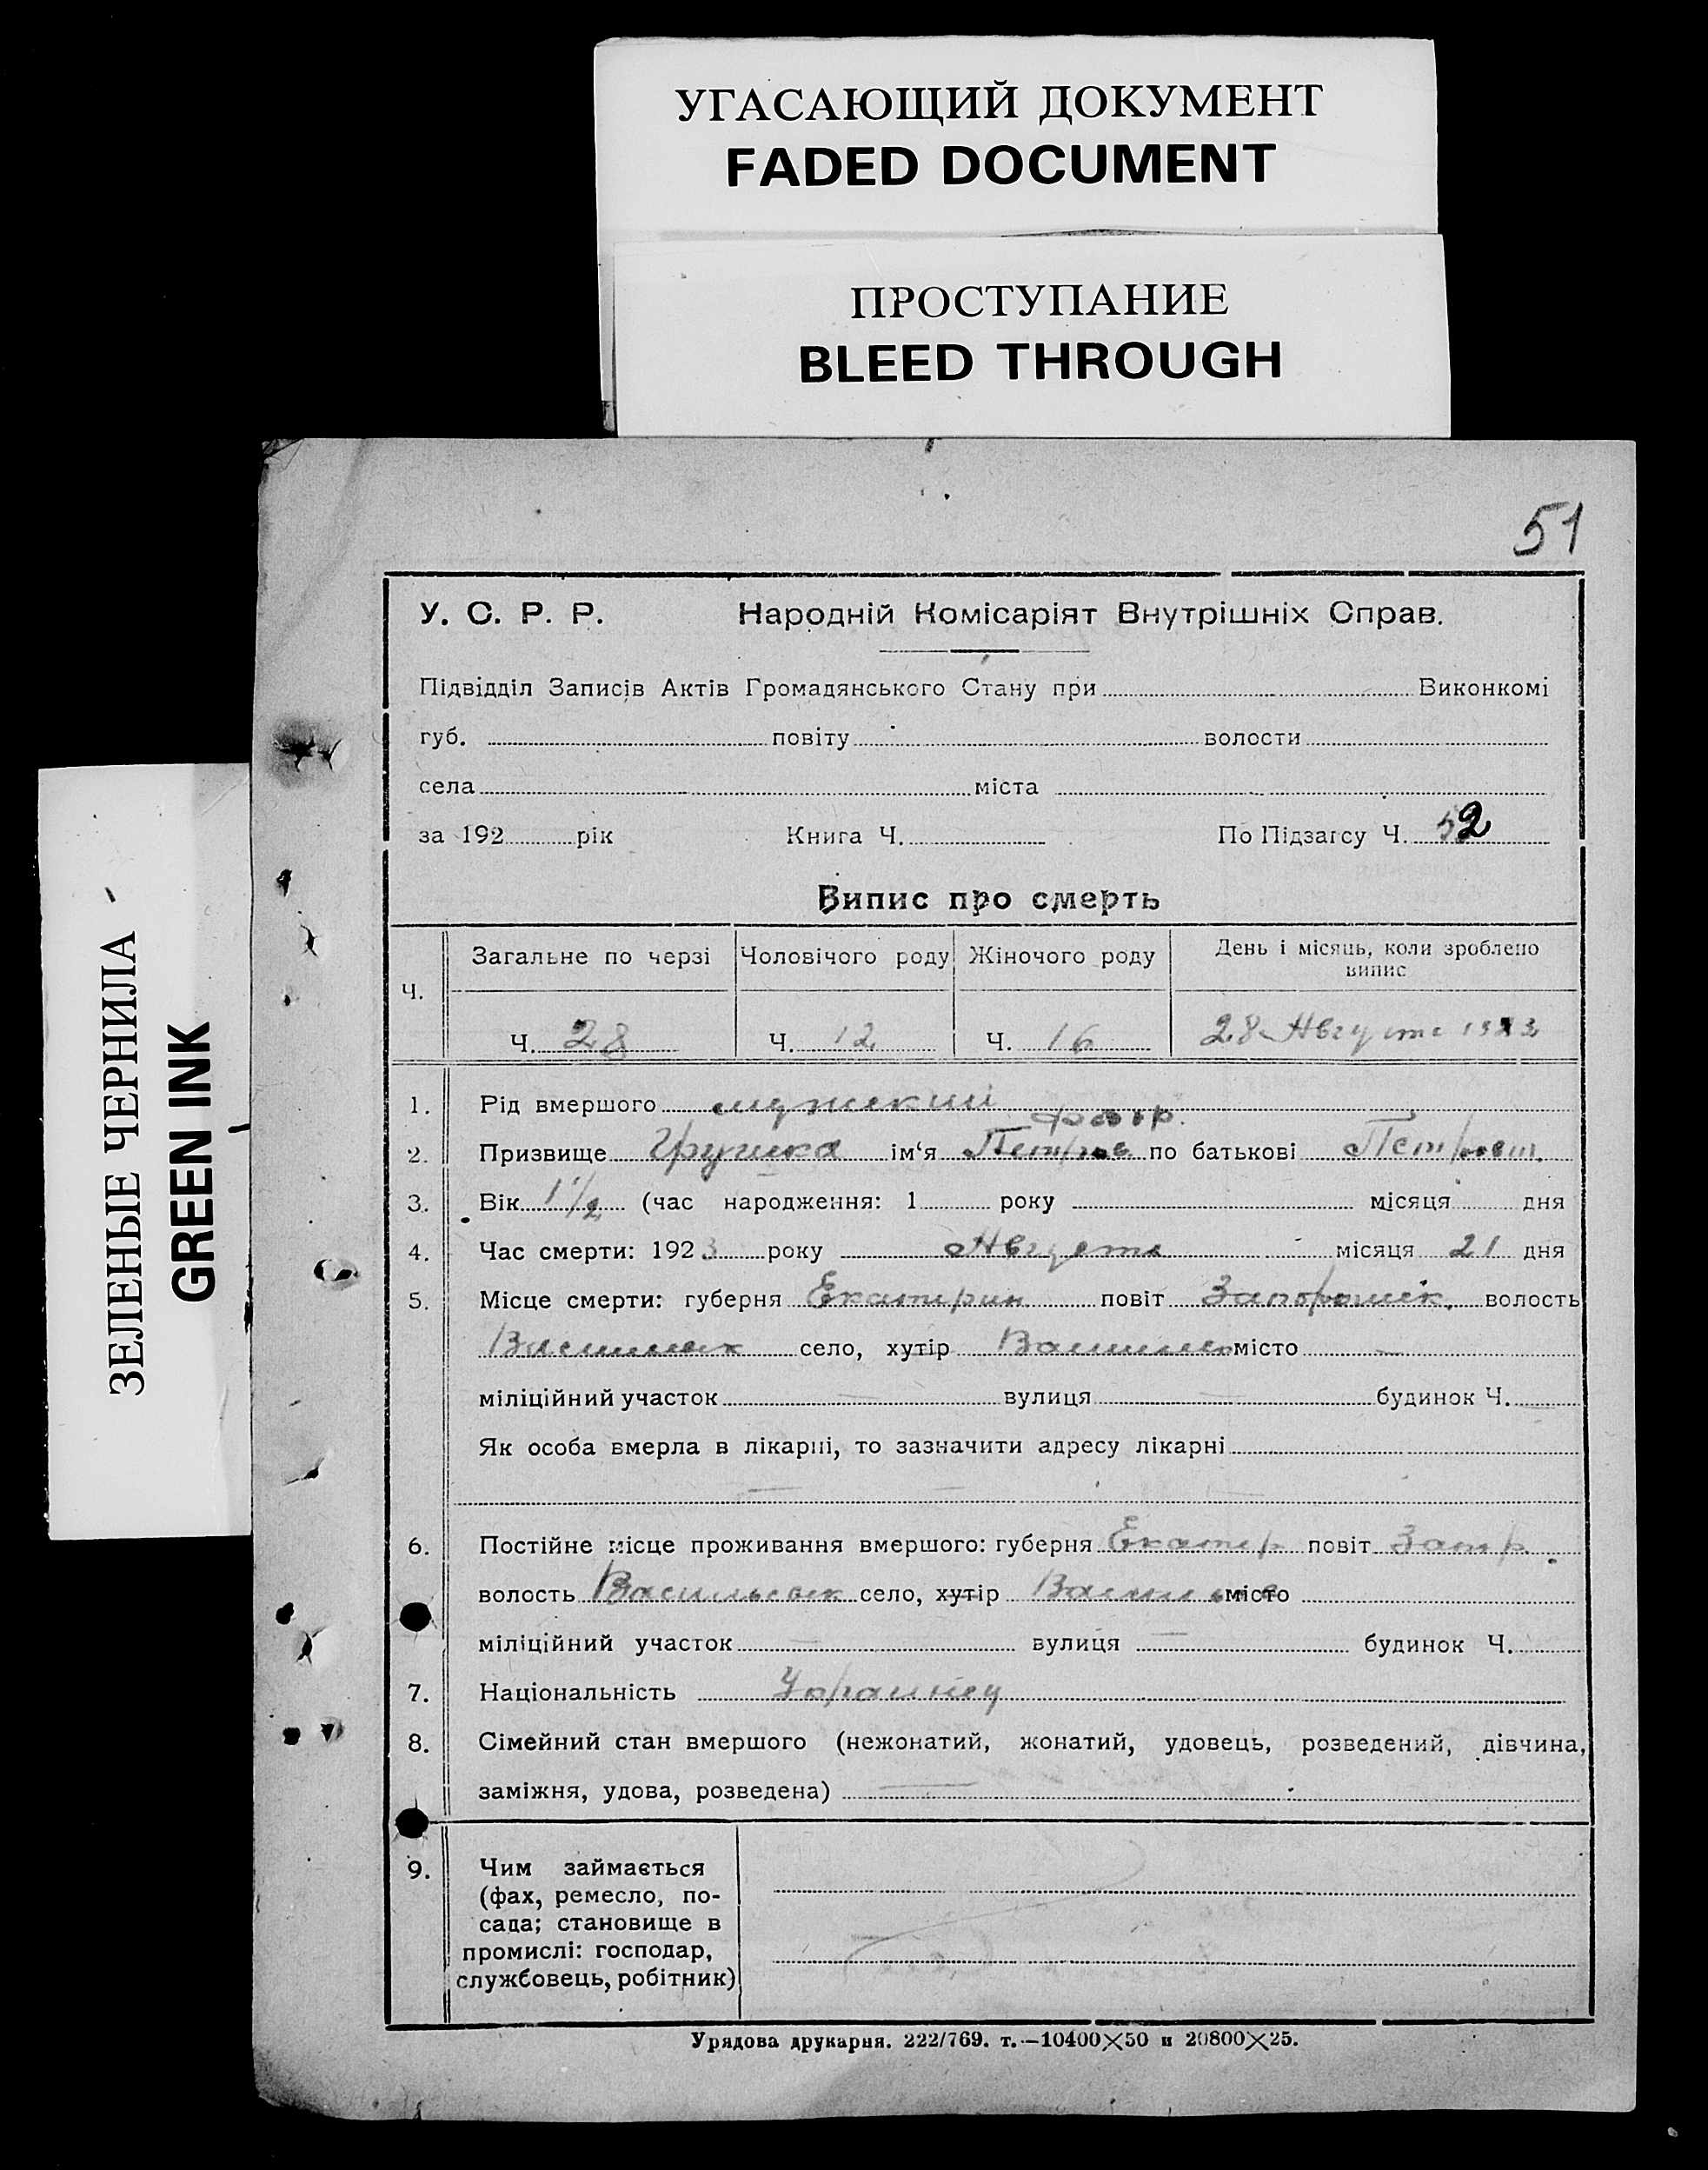 УГАСАЮЩИЙ ДОКУМЕНТ
FADED DOCUMENT
ПРОСТУПАНИЕ
BLEED THROUGH
ЗЕЛЕНЫЕ ЧЕРНИЛА
GREEN INK
51
У. С. Р. Р. Народній Комісаріят Внутрішніх Справ.
Підвідділ Записів Актів Громадянського Стану при Виконкомі
губ. повіту волости
села міста
за 192 рік Книга Ч. По Підзагсу Ч. 52
Випис про смерть
Ч. Загальне по черзі Чоловічого роду Жіночого роду День і місяць, коли зроблено
випис
Ч. 28 Ч. 12 Ч. 16 28 Августа 1923
1. Рід вмершого мужский
2. Призвище ім‘я по батькові
3. Вік 1 1/2 (час народження: 1 року місяця дня
4. Час смерти: 1923 року Августа місяця 21 дня
5. Місце смерти: губерня Екатерин повіт волость
село, хутір місто —
міліційний участок — вулиця — будинок Ч. —
Як особа вмерла в лікарні, то зазначити адресу лікарні
— —
6. Постійне місце проживання вмершого: губерня Екатер повіт
волость Васильевк село, хутір місто
міліційний участок — вулиця — будинок Ч.
7. Національність
8. Сімейний стан вмершого (нежонатий, жонатий, удовець, розведений, дівчина,
заміжня, удова, розведена) —
9. Чим займається
(фах, ремесло, по-
сада; становище в
промислі: господар,
службовець, робітник)
Урядова друкарня. 222/769. т.—10400×50 и 20800×25.